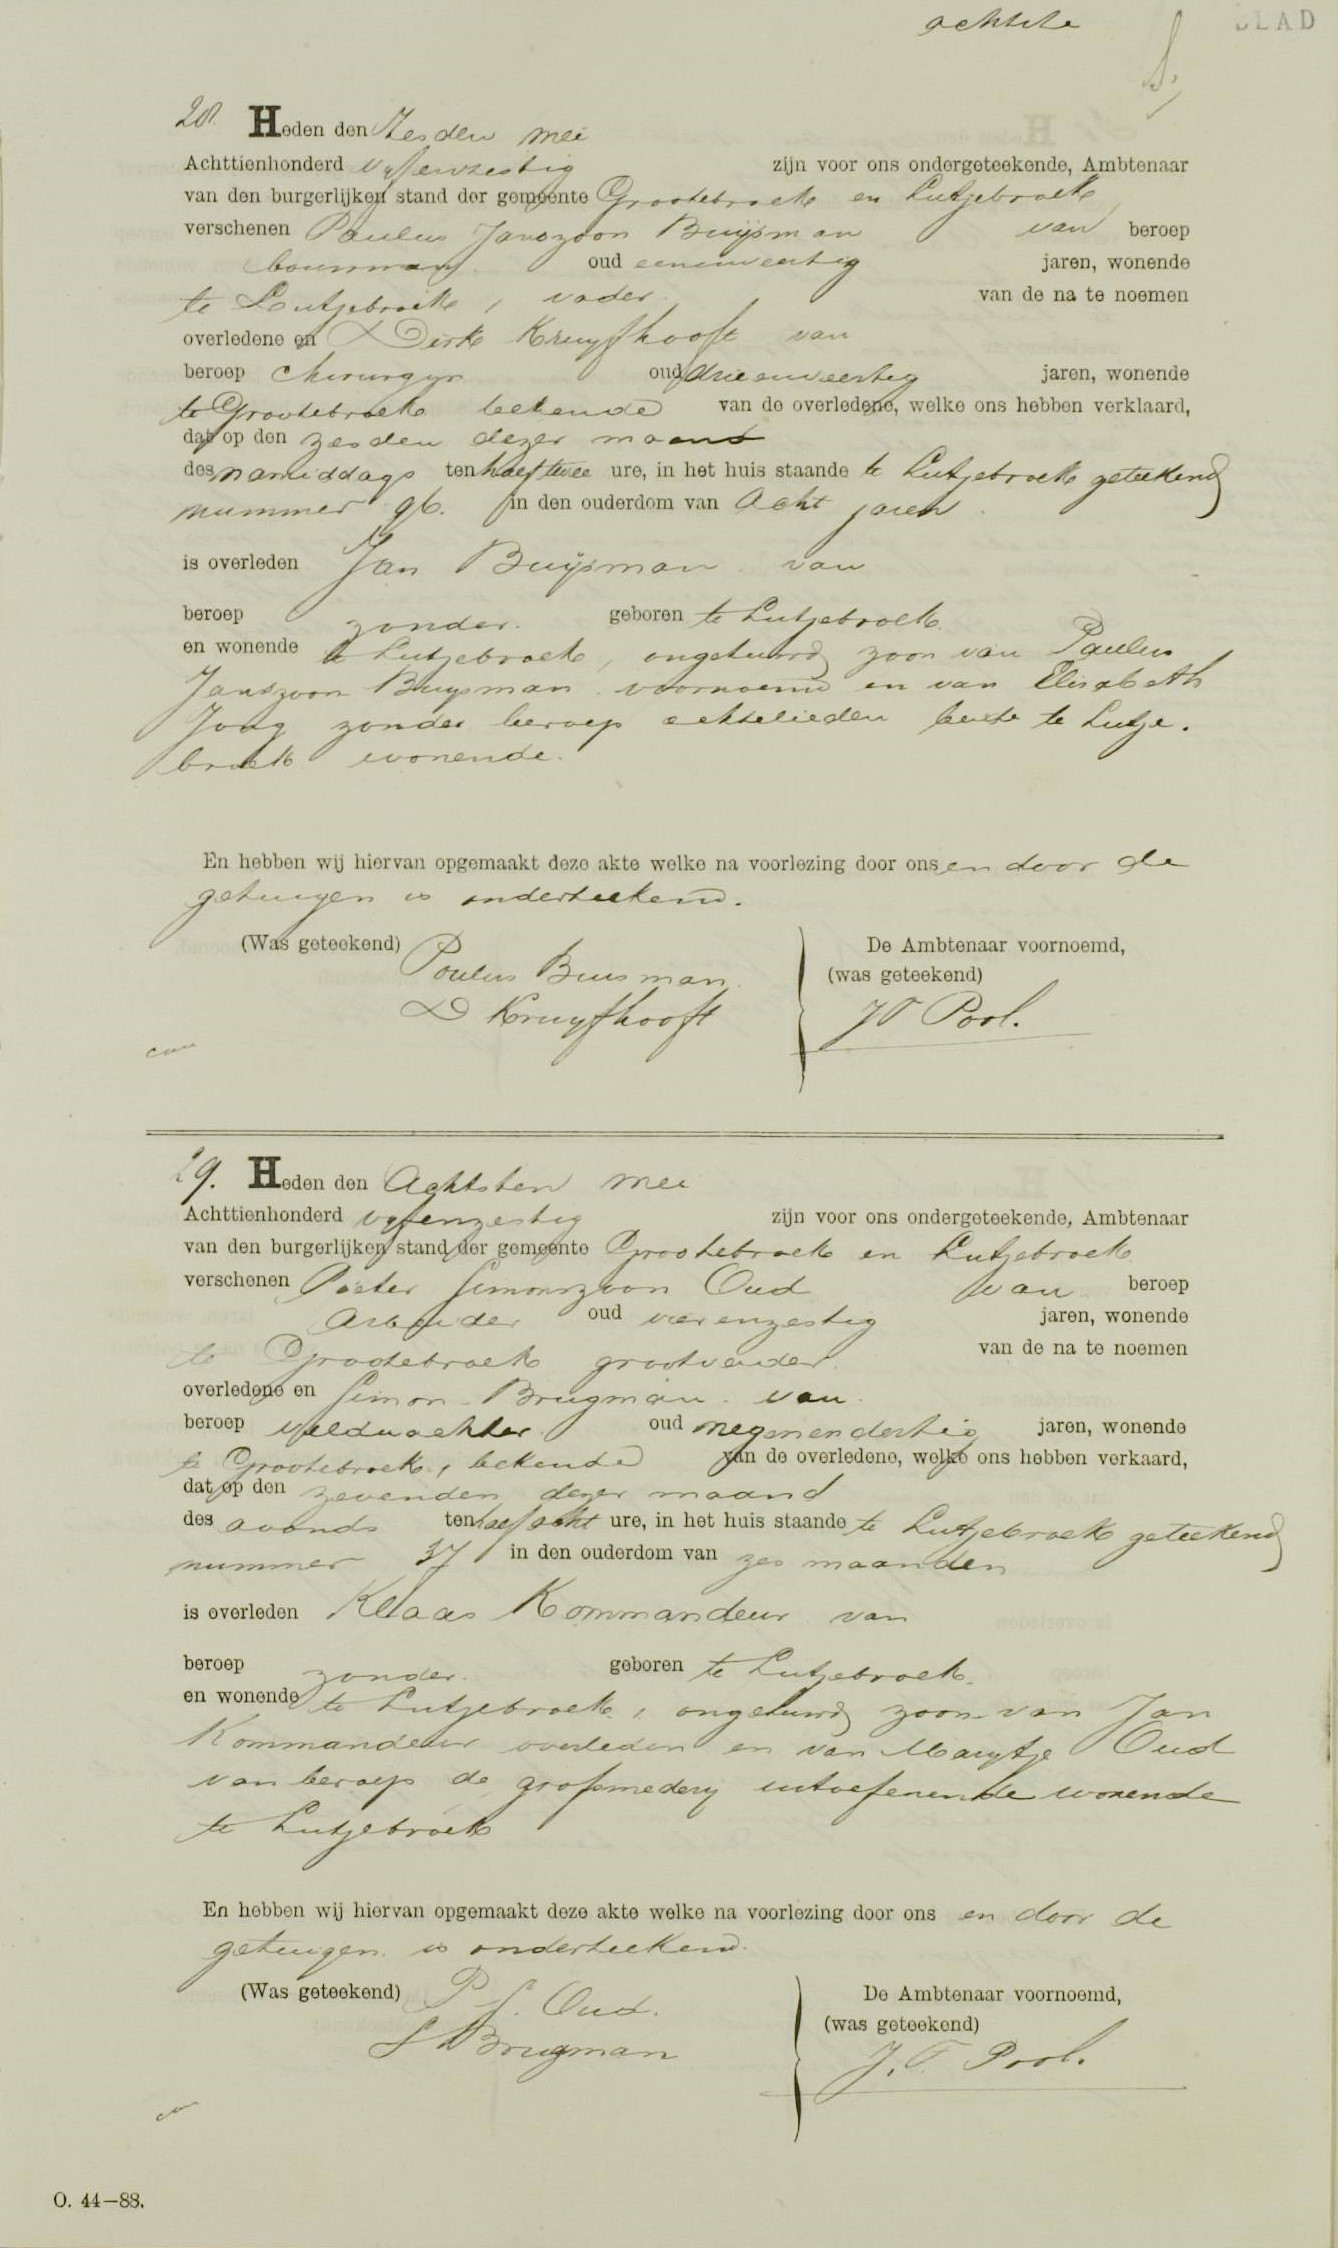 achtste BLAD
28. Heden den Zesden Mei
Achttienhonderd vyfenzestig zijn voor ons ondergeteekende, Ambtenaar
van den burgerlijken stand der gemeente Grootebroek en Lutjebroek
verschenen Paulus Janszoon Buijsman van beroep
bouwman oud eenenveertig jaren, wonende
te Lutjebroek, vader van de na te noemen
overledene en Dirk Kruyfhooft van
beroep chirurgyn oud drieenveertig jaren, wonende
te Grootebroek bekende van de overledene, welke ons hebben verklaard,
dat op den zesden dezer maand
des namiddags ten half twee ure, in het huis staande te Lutjebroek geteekend
nummer 96. in den ouderdom van Acht jaren.
is overleden Jan Buijsman van
beroep zonder. geboren te Lutjebroek
en wonende te Lutjebroek, ongehuwd zoon van Paulus
Janszoon Buysman voornoemd en van Elisabeth
Jong zonder beroep echtelieden beide te Lutje.
broek wonende.
En hebben wij hiervan opgemaakt deze akte welke na voorlezing door ons en door de
getuigen is onderteekend.
(Was geteekend) De Ambtenaar voornoemd,
Poulus Buisman (was geteekend)
D Kruyfhooft Pool.
29. Heden den Achtsten Mei
Achttienhonderd vyfenzestig zijn voor ons ondergeteekende, Ambtenaar
van den burgerlijken stand der gemeente Grootebroek en Lutjebroek
verschenen Pieter Simonszoon Oud van beroep
Arbeider oud vierenzestig jaren, wonende
te Grootebroek grootvader. van de na te noemen
overledene en Simon Brugman van
beroep veldwachter oud negenendertig jaren, wonende
te Grootebroek, bekende van de overledene, welke ons hebben verkaard,
dat op den zevenden dezer maand
des avonds ten half acht ure, in het huis staande te Lutjebroek geteekend
nummer 37 in den ouderdom van zes maanden
is overleden Klaas Kommandeur van
beroep zonder. geboren te Lutjebroek.
en wonende te Lutjebroek, ongehuwd zoon van Jan
Kommandeur overleden en van Marytje Oud
van beroep de grofsmedery uitoefenende wonende
te Lutjebroek
En hebben wij hiervan opgemaakt deze akte welke na voorlezing door ons en door de
getuigen is onderteekend.
(Was geteekend) P S. Oud. De Ambtenaar voornoemd,
S Brugman (was geteekend)
J. T Pool.
O. 44—88.